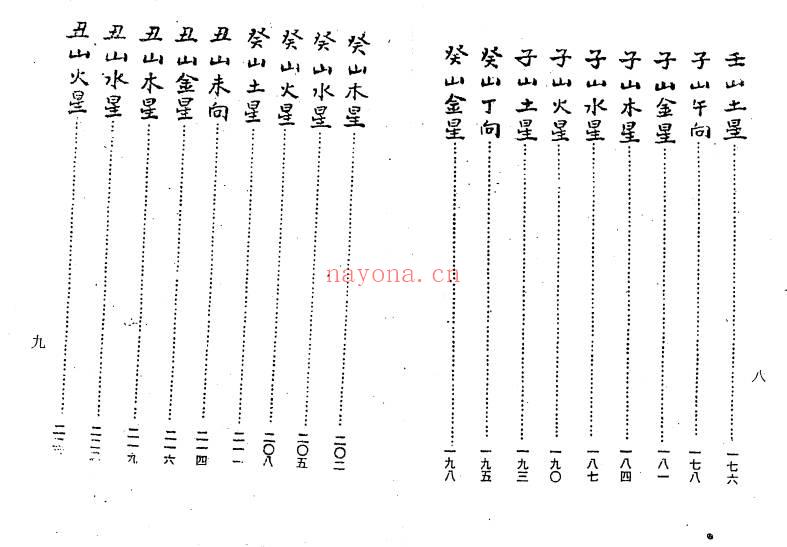 壬山土星 一七六
子山午向 一七八
子山金星 一八一
子山木星 一八四
子山水星 一八七
子山火星 一九〇
子山土星 一九三
癸山丁向 一九五
癸山金星 一九八
八
癸山木星 二〇二
癸山水星 二〇五
癸山火星 二〇八
癸山土星 二一一
丑山未向 二一四
丑山金星 二一六
丑山木星 二一九
丑山水星
丑山火星
九
nayona.cn